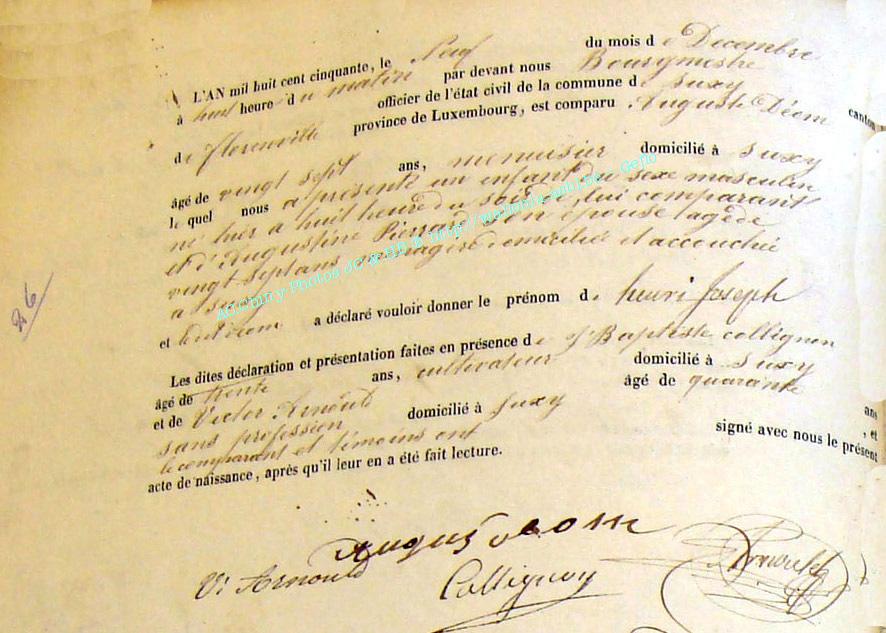 L'AN mil huit cent cinquante, le Neuf du mois d e Decembre
à huit heure d u matin par devant nous Bourgmestre
officier de l'état civil de la commune d e Suxy canton
d e florenville province de Luxembourg, est comparu Auguste Déom
âgé de vingt sept ans, menuisier domicilié à Suxy
le quel nous a présenté un enfant du sexe masculin
né hier a huit heure du soir de lui comparant
et d'Augustine Pierrard son épouse agé de
vingt sept ans menagère domiciliée et accouchée
a Suxy
et a déclaré vouloir donner le prénom d e henri Joseph
Les dites déclaration et présentation faites en présence d e Jn Baptiste Collignon
âgé de trente ans, cultivateur domicilié à Suxy
et de Victor Arnould âgé de quarante ans
sans profession domicilié à Suxy , et
le comparant et témoins ont signé avec nous le présent
acte de naissance, après qu'il leur en a été fait lecture.
26
August Deom
Vr Arnould Collignon Arnould